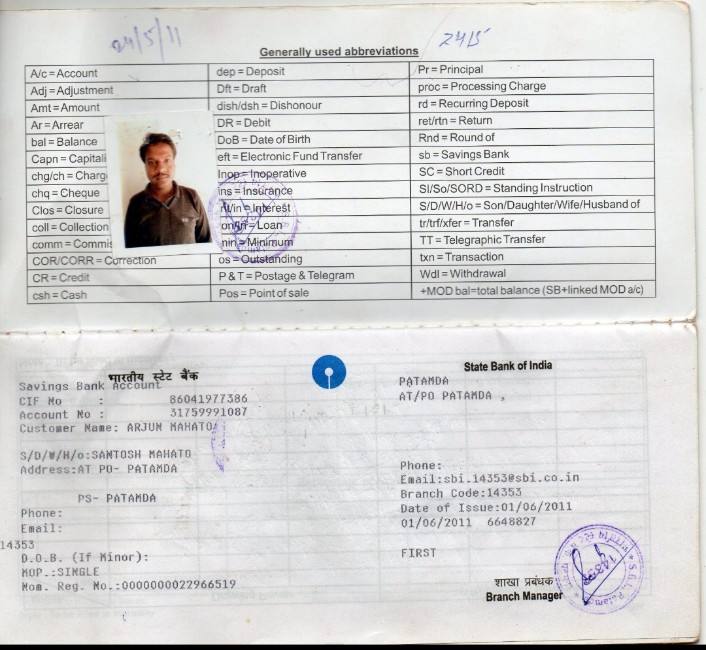 24/5/11
Generally used abbreviations
A/c = Account
Adj = Adjustment
Amt = Amount
Ar = Arrear
bal = Balance
Capn = Capitali
chg/ch = Charg
chq = Cheque
Clos = Closure
coll = Collection
comm = Commis
COR/CORR = Correction
CR = Credit
csh = Cash
dep = Deposit
Dft = Draft
dish/dsh = Dishonour
DR = Debit
DoB = Date of Birth
eft = Electronic Fund Transfer
Inop = Inoperative
ins = Insurance
Interest
Loan
Minimum
os = Outstanding
P & T = Postage & Telegram
Pos = Point of sale
Pr = Principal
proc = Processing Charge
rd = Recurring Deposit
ret/rtn = Return
Rnd = Round of
sb = Savings Bank
SC = Short Credit
SI/So/SORD = Standing Instruction
S/D/W/H/o = Son/Daughter/Wife/Husband of
tr/trf/xfer = Transfer
TT = Telegraphic Transfer
txn = Transaction
Wdl = Withdrawal
+MOD bal=total balance (SB+linked MOD a/c)
भारतीय स्टेट बैंक
Savings Bank Account
CIF No : 86041977386
Account No : 31759991087
Customer Name: ARJUN MAHATO
S/D/W/H/o:SANTOSH MAHATO
Address:AT PO- PATAMDA
PS- PATAMDA
Phone:
Email:
14353
D.O.B. (If Minor):
MOP.:SINGLE
Nom. Reg. No.:0000000022966519
State Bank of India
PATAMDA
AT/PO PATAMDA ,
Phone:
Email:sbi.14353@sbi.co.in
Branch Code:14353
Date of Issue:01/06/2011
01/06/2011 6648827
FIRST
शाखा प्रबंधक
Branch Manager